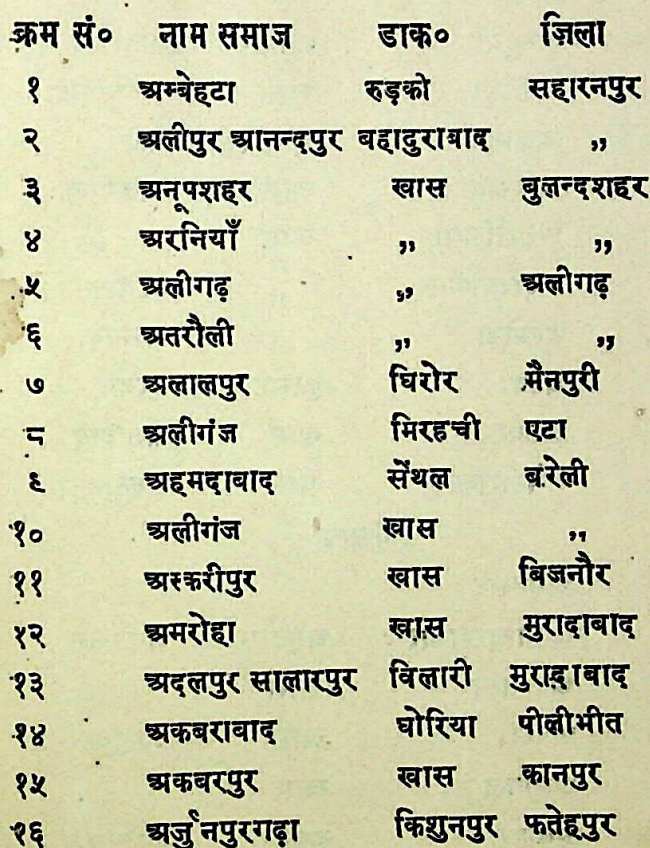 क्रम सं० नाम समाज डाक० ज़िला
१ अम्बेहटा रुड़को सहारनपुर
२ अलीपुर आनन्दपुर बहादुराबाद ,,
३ अनूपशहर खास बुलन्दशहर
४ अरनियाँ ,, ,,
५ अलीगढ़ ,, अलीगढ़
६ अतरौली ,, ,,
७ अलालपुर घिरोर मैनपुरी
८ अलीगंज मिरहची एटा
९ अहमदाबाद सेंथल बरेली
१० अलीगंज खास ,,
११ अस्करीपुर खास बिजनौर
१२ अमरोहा खास मुरादाबाद
१३ अदलपुर सालारपुर विलारी मुरादाबाद
१४ अकबराबाद घोरिया पीलीभीत
१५ अकबरपुर खास कानपुर
१६ अर्जुनपुरगढ़ा किशुनपुर फतेहपुर